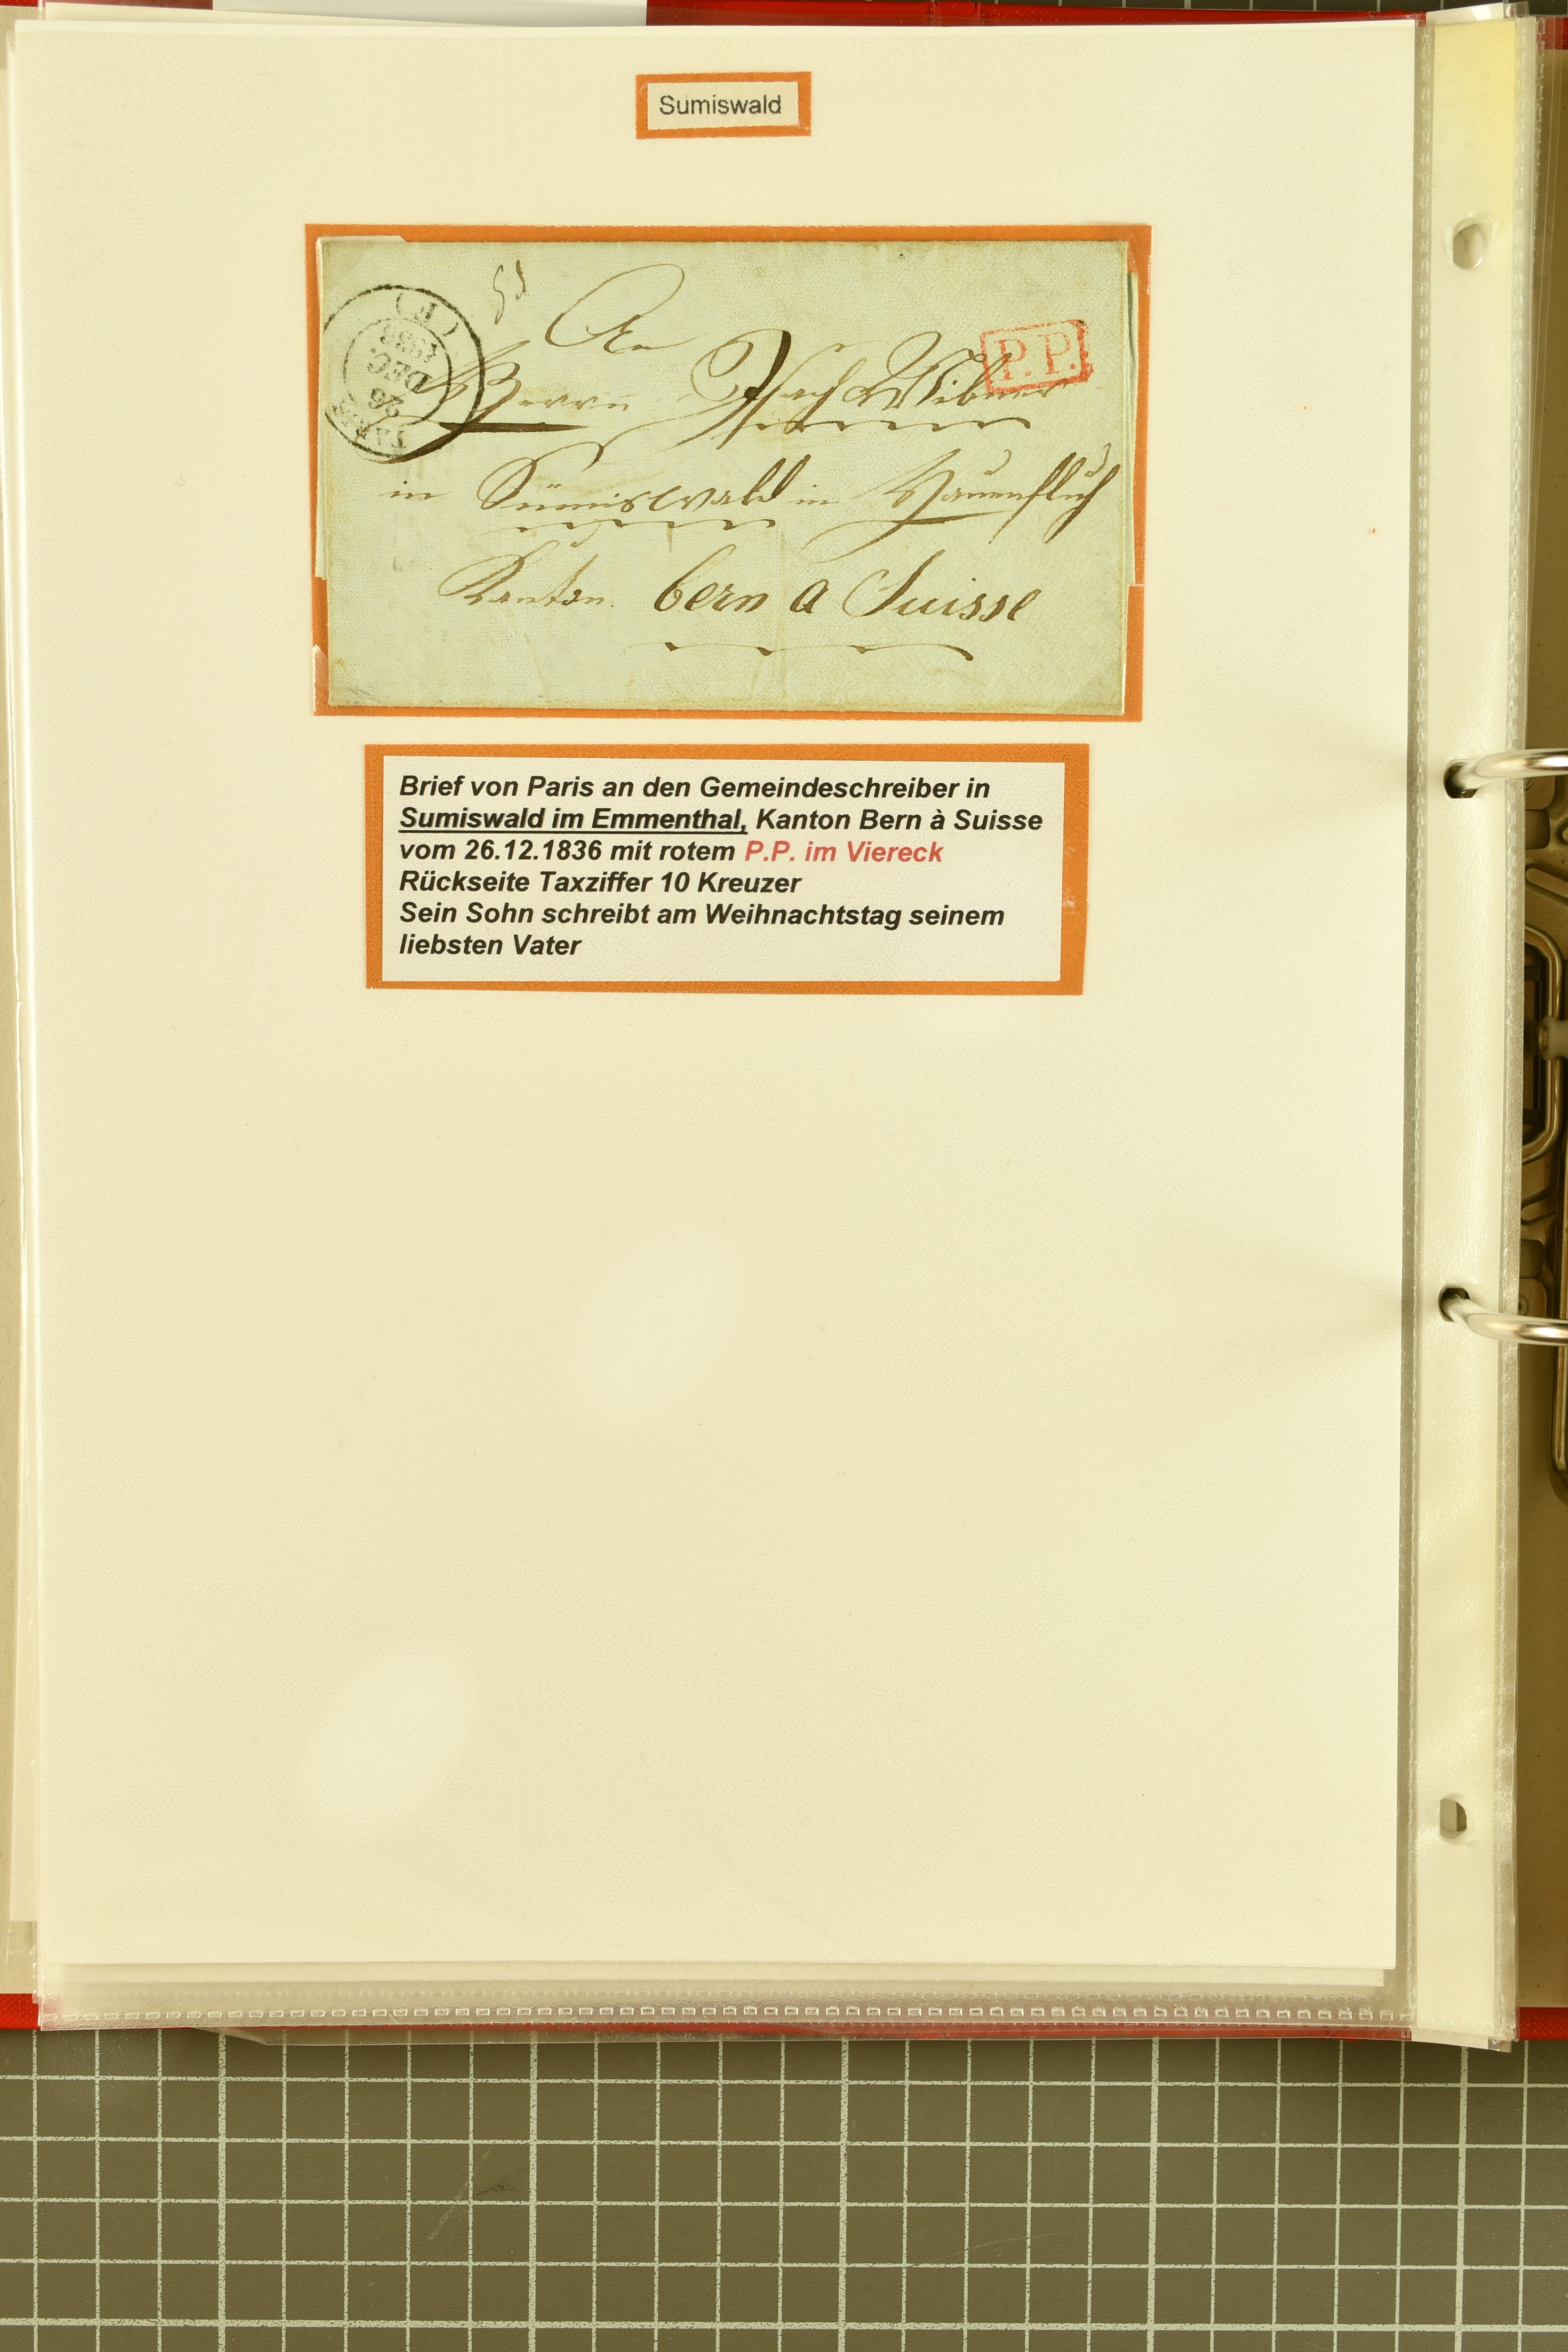 Sumiswald
An
P.P.
Herrn
in Sümiswald in
Kanton. bern a Suisse
PARIS
26
DEC.
Brief von Paris an den Gemeindeschreiber in
Sumiswald im Emmenthal, Kanton Bern à Suisse
vom 26.12.1836 mit rotem P.P. im Viereck
Rückseite Taxziffer 10 Kreuzer
Sein Sohn schreibt am Weihnachtstag seinem
liebsten Vater